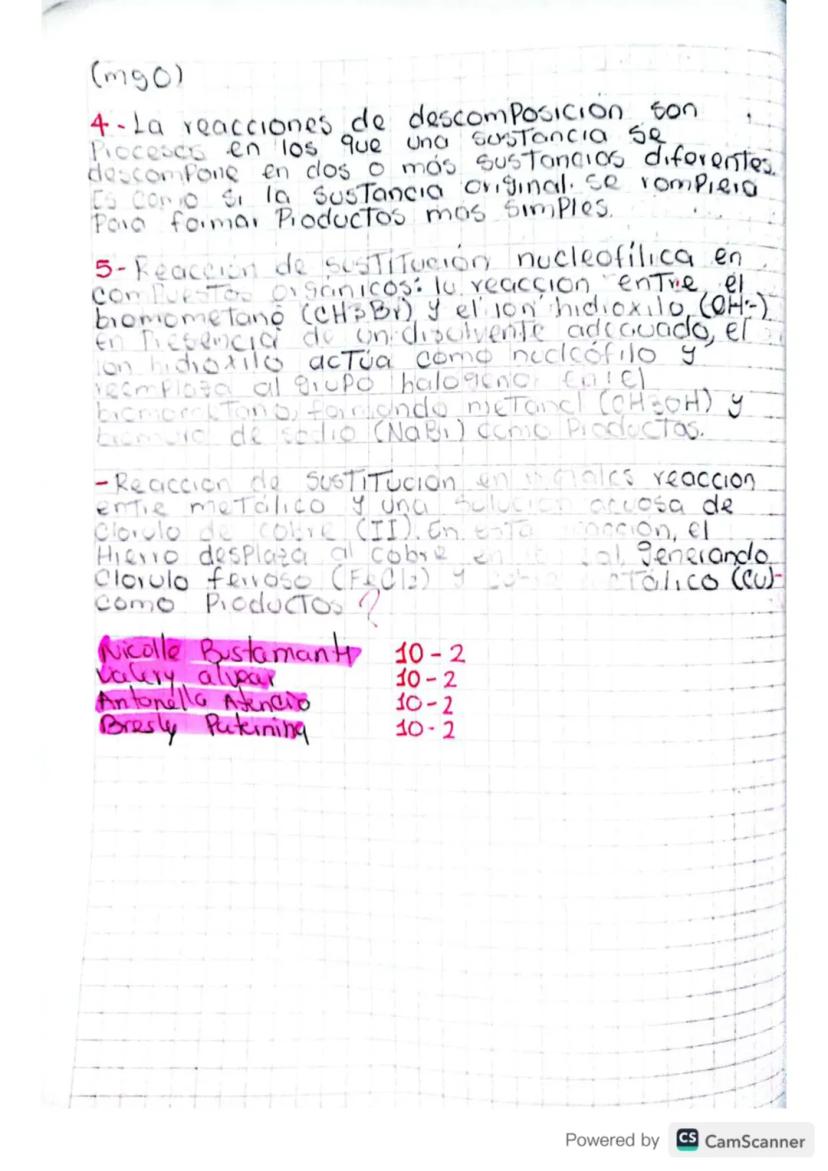 (mgO)
4-La reacciones de descomPosición son
Procesos en los que una sustancia se
descompone en dos o más sustancias diferentes.
Es como si la sustancia original. se rompiera
Para formar Productos mas simples.
5-Reacción de sustitución nucleofílica en
compuestos orgánicos: la reaccion entre el
bromometano (CH3Br) y el ion hidroxilo, (OH-)
en Presencia de un disolvente adecuado, el
ion hidroxilo actúa como nucleófilo y
reemplaza al grupo halogeno en el
bromometano, formando metanol (CH3OH) y
bromuro de sodio (NaBr) como Productos.
-Reaccion de sustitución en reaccion
entre metálico y una solucion acuosa de
Cloruro de cobre (II). En esta reacción, el
Hierro desplaza al cobre en la sal, generando
Cloruro ferroso (FeCl2) y cobre metálico (Cu)-
como Productos ?
Nicolle Bustamante 10-2
Valery alvear 10-2
Antonella Atencio 10-2
Bresly 10-2
Powered by CS CamScanner